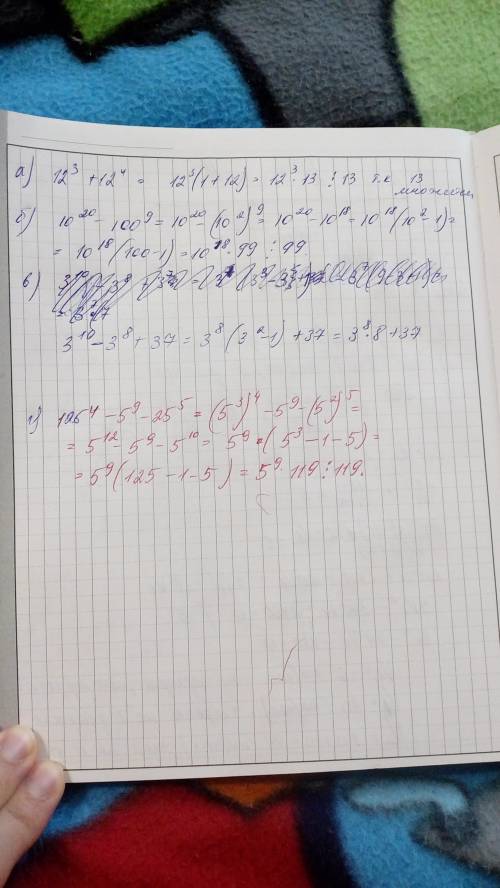 а) 12³ + 12⁴ = 12³(1+12) = 12³·13 ⋮ 13 т.к 13
множител
б) 10²⁰ - 100⁹ = 10²⁰ - (10²)⁹ = 10²⁰ - 10¹⁸ = 10¹⁸(10² - 1) =
= 10¹⁸(100-1) = 10¹⁸·99 ⋮ 99
в)
3¹⁰ - 3⁸ + 37 = 3⁸(3² - 1) + 37 = 3⁸·8 + 37
г) 125⁴ - 5⁹ - 25⁵ = (5³)⁴ - 5⁹ - (5²)⁵ =
= 5¹² - 5⁹ - 5¹⁰ = 5⁹·(5³ - 1 - 5) =
= 5⁹(125 - 1 - 5) = 5⁹·119 ⋮ 119.